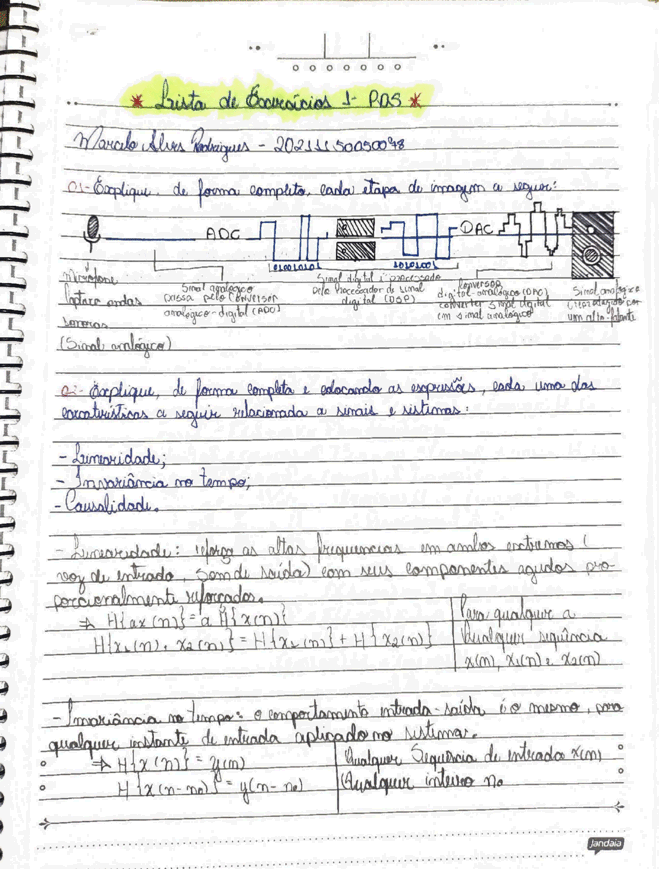 * Lista de Exercícios 1- PDS *
Marcelo Alves Rodrigues - 20211150050078
01- Explique, de forma completa, cada etapa de imagem a seguir:
ADC
DAC
01001010
01010010
Microfone
captura ondas
sonoras
(Sinal analógico)
Sinal analógico
passa pelo conversor
analógico-digital (ADC)
Sinal digital é processado
pelo Processador de sinal
digital (DSP)
Conversor
digital-analógico (DAC)
converter sinal digital
em sinal analógico
Sinal analógico
com
um alto-falante
02- Explique, de forma completa e colocando as expressões, cada uma das
características a seguir relacionada a sinais e sistemas:
- Linearidade;
- Invariância no tempo;
- Causalidade.
- Linearidade: reforça as altas frequencias em ambos extremos (
voz de entrada, som de saída) com seus componentes agudos pro-
porcionalmente reforçados.
⇒ H{ax(n)} = a H{x(n)}
H{x₁(n), x₂(n)} = H{x₁(n)} + H{x₂(n)}
Para qualquer a
Qualquer sequência
x(n), x₁(n) e x₂(n)
- Invariância no tempo: o comportamento entrada-saída é o mesmo, para
qualquer instante de entrada aplicado no sistema.
⇒ H{x(n)} = y(n)
H{x(n-n₀)} = y(n-n₀)
Qualquer Sequência de entrada x(n)
Qualquer inteiro n₀
Jandaia